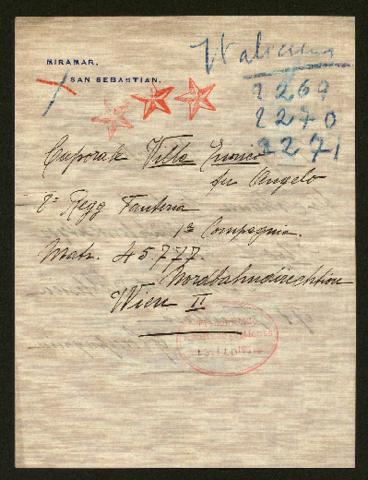 MIRAMAR.
SAN SEBASTIAN.
Italien
2269
2270
2271
Caporale Villa Enrico
fu Angelo
8º Regg Fanteria
1ª Compagnia.
Matr. 45,777.
Nordbahndirechtion
Wien II